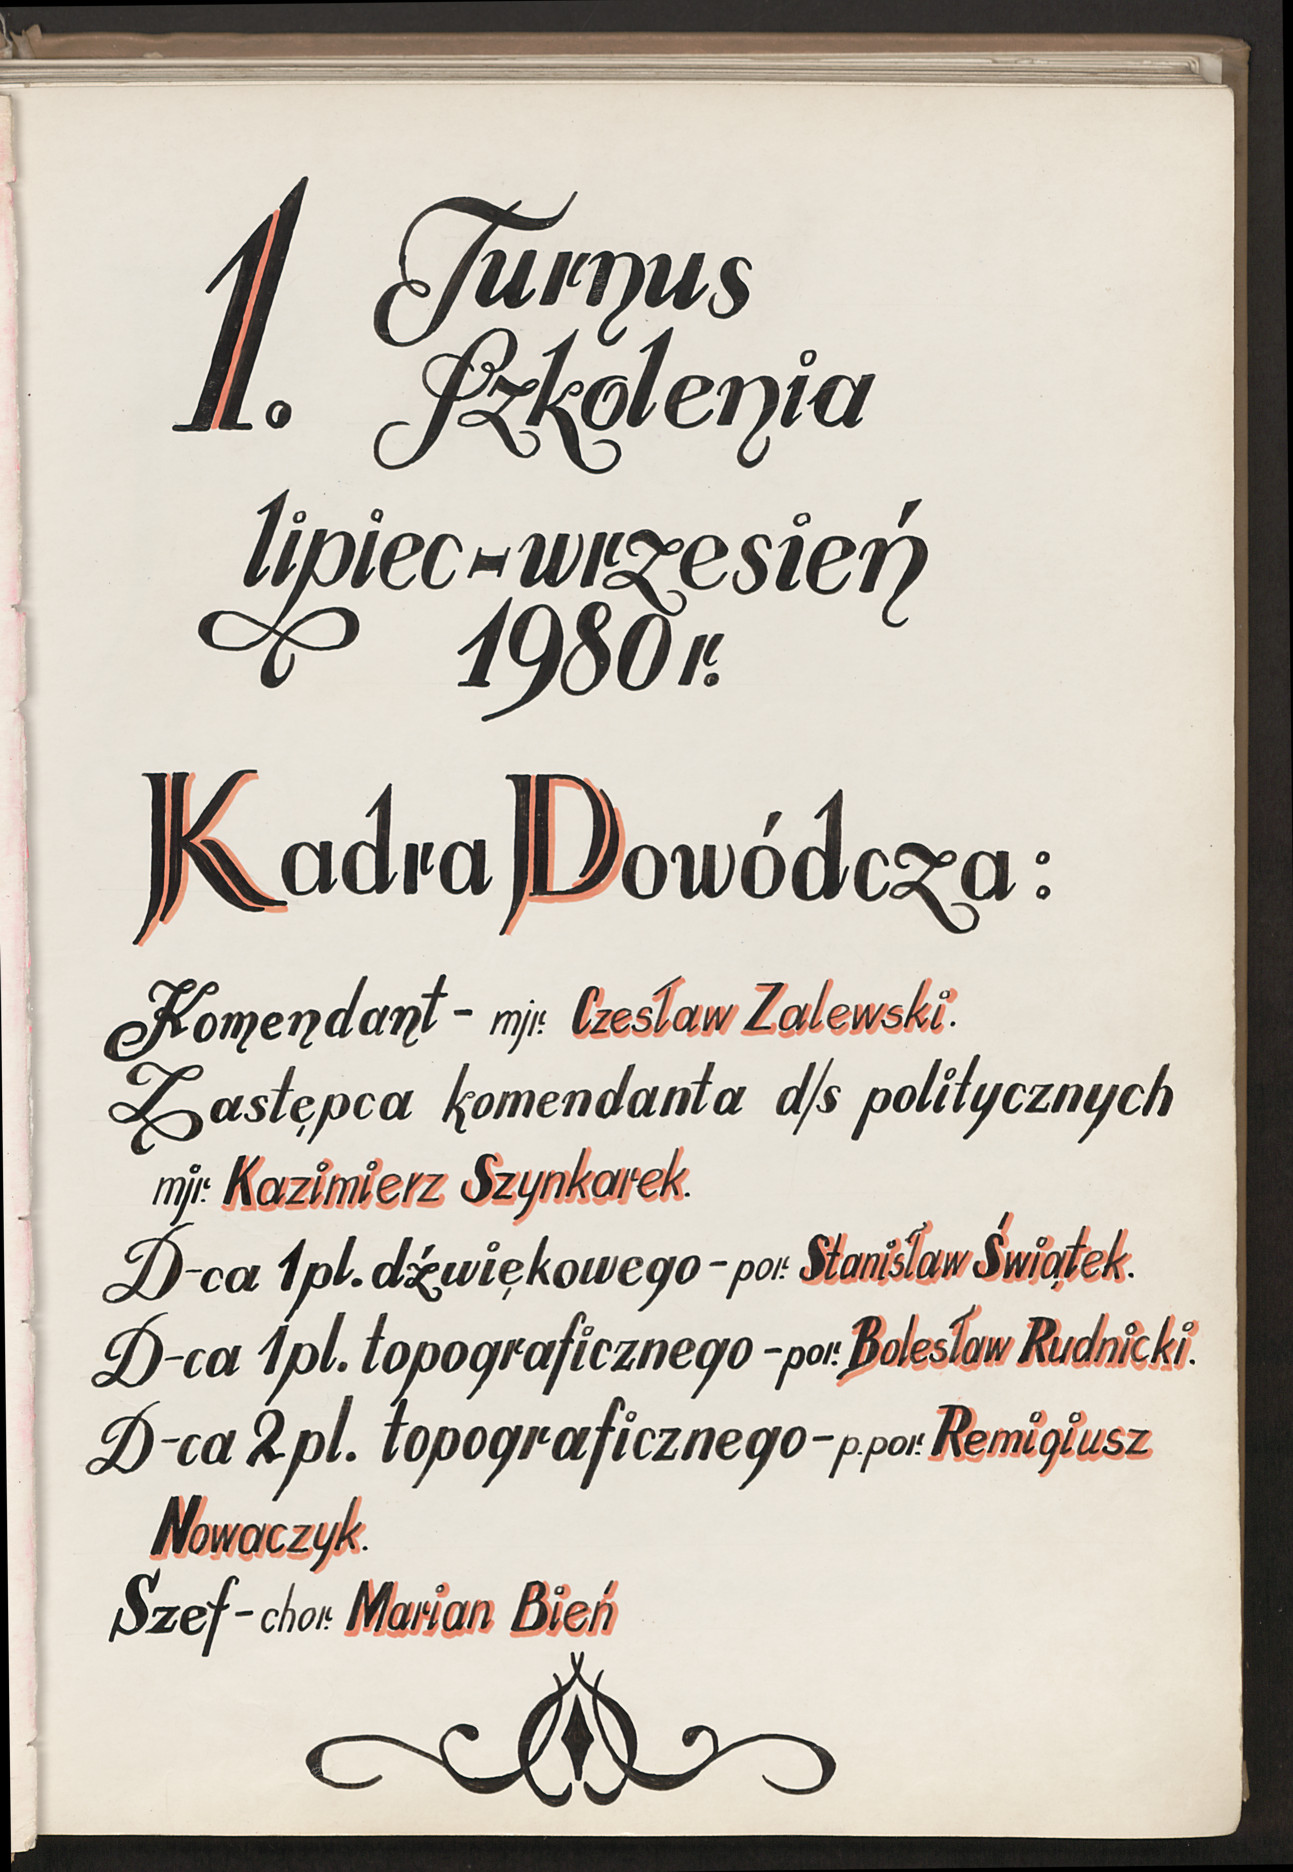 1. Turnus
Szkolenia
lipiec-wrzesień
1980 r.
Kadra Dowódcza:
Komendant - mjr. Czesław Zalewski.
Zastępca komendanta d/s politycznych
mjr. Kazimierz Szynkarek.
D-ca 1 pl. dźwiękowego - por. Stanisław Świątek.
D-ca 1 pl. topograficznego - por. Bolesław Rudnicki.
D-ca 2 pl. topograficznego - p.por. Remigiusz
Nowaczyk.
Szef - chor. Marian Bień